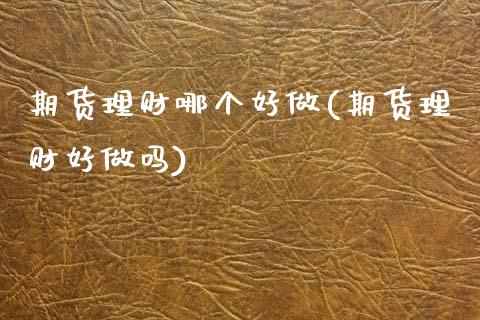 期货理财哪个好做(期货理
财好做吗)